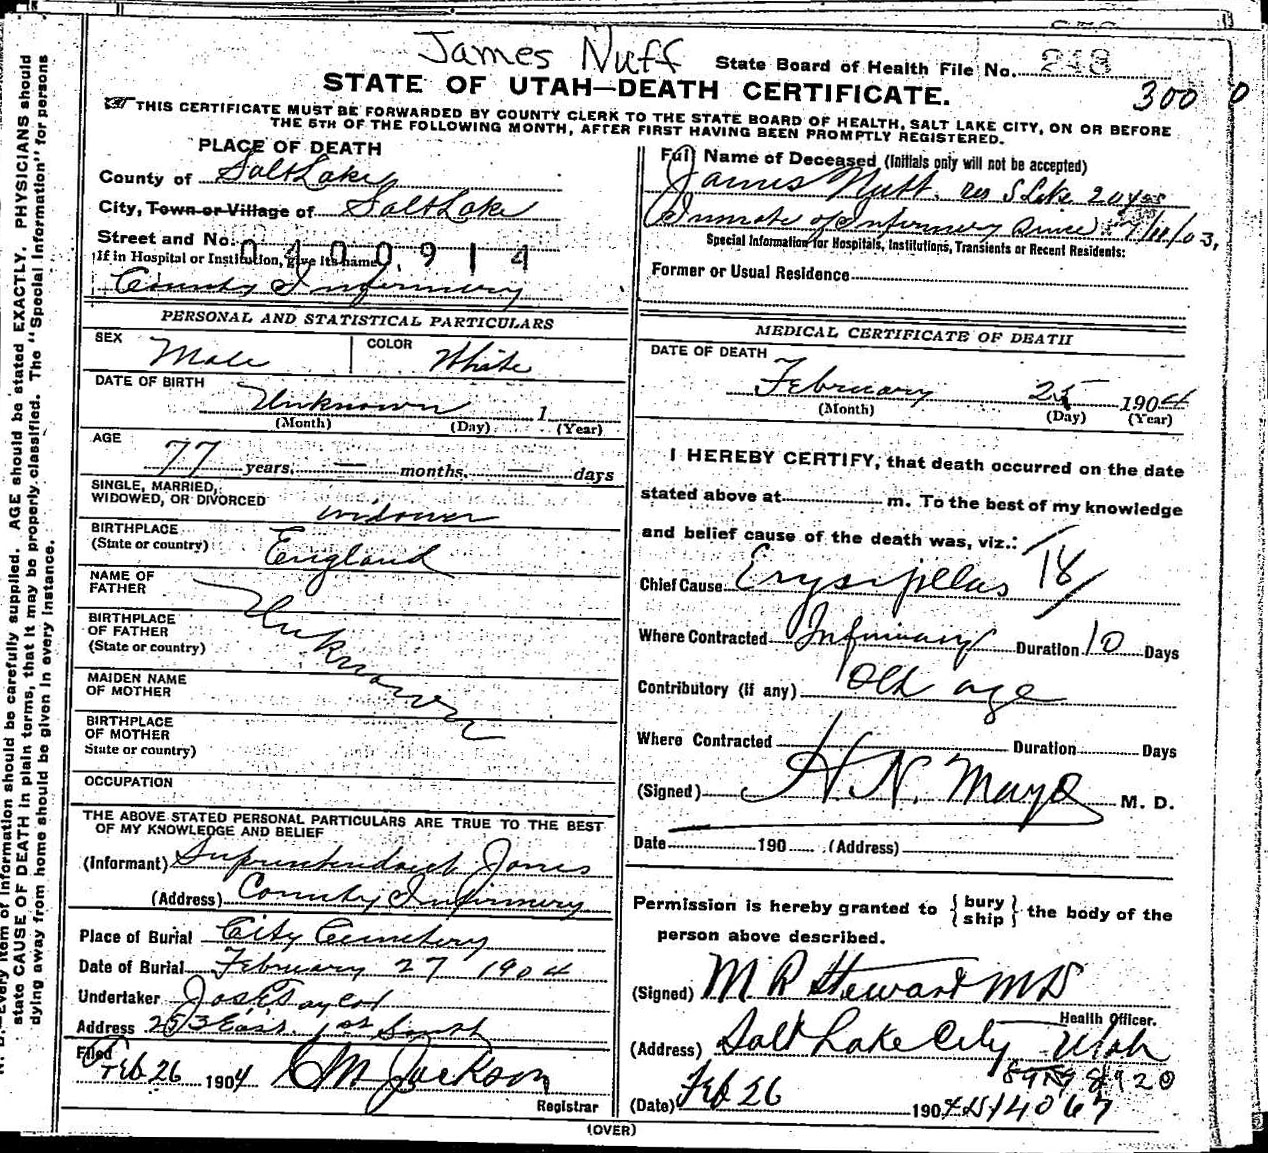 James Nuff
State Board of Health File No. 248
STATE OF UTAH—DEATH CERTIFICATE.
300 0
THIS CERTIFICATE MUST BE FORWARDED BY COUNTY CLERK TO THE STATE BOARD OF HEALTH, SALT LAKE CITY, ON OR BEFORE
THE 5TH OF THE FOLLOWING MONTH, AFTER FIRST HAVING BEEN PROMPTLY REGISTERED.
PLACE OF DEATH
County of Salt Lake
City, Town or Village of Salt Lake
Street and No.
0400914
If in Hospital or Institution, give its name
County Infirmery
PERSONAL AND STATISTICAL PARTICULARS
SEX Male
COLOR White
DATE OF BIRTH
Unknown 1
(Month) (Day) (Year)
AGE
77 years, — months, — days
SINGLE, MARRIED,
WIDOWED, OR DIVORCED widower
BIRTHPLACE
(State or country) England
NAME OF
FATHER
Unknown
BIRTHPLACE
OF FATHER
(State or country)
MAIDEN NAME
OF MOTHER
BIRTHPLACE
OF MOTHER
State or country)
OCCUPATION
THE ABOVE STATED PERSONAL PARTICULARS ARE TRUE TO THE BEST
OF MY KNOWLEDGE AND BELIEF
(Informant) Superintendent Jones
(Address) County Infirmery
Place of Burial City Cemetery
Date of Burial February 27 1904
Undertaker Jos E Taylor
Address 253 East 1st South
Filed
Feb 26 1904 Jackson
Registrar
Full Name of Deceased (Initials only will not be accepted)
James Nutt. res S Lake 20 yrs
Inmate of Infirmery Since 7/11/03,
Special Information for Hospitals, Institutions, Transients or Recent Residents:
Former or Usual Residence
MEDICAL CERTIFICATE OF DEATH
DATE OF DEATH
February 25 1904
(Month) (Day) (Year)
I HEREBY CERTIFY, that death occurred on the date
stated above at m. To the best of my knowledge
and belief cause of the death was, viz.:
Chief Cause Erysipellas 18
Where Contracted Infirmary Duration 10 Days
Contributory (if any) Old age
Where Contracted Duration Days
(Signed) H. N. Mayo M. D.
Date 190 (Address)
Permission is hereby granted to {bury
ship} the body of the
person above described.
(Signed) M R Stewart MD
Health Officer.
(Address) Salt Lake City Utah
8920
(Date) Feb 26 1904
14067
(OVER)
N. B.—Every item of information should be carefully supplied. AGE should be stated EXACTLY. PHYSICIANS should
state CAUSE OF DEATH in plain terms, that it may be properly classified. The "Special Information" for persons
dying away from home should be given in every instance.